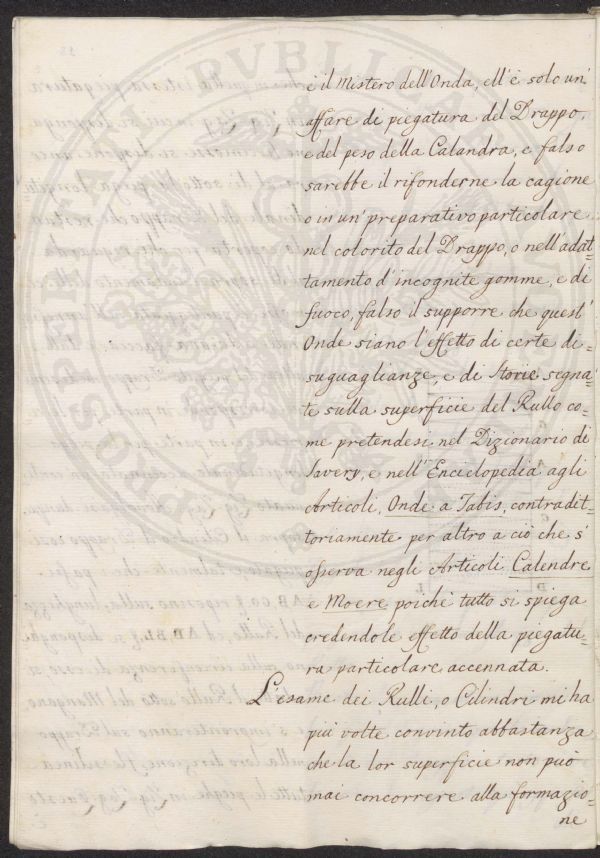 è il Mistero dell'Onda, ell'è solo un'
affare di piegatura del Drappo,
e del peso della Calandra, e falso
sarebbe il rifonderne la cagione
o in un' preparativo particolare
nel colorito del Drappo, o nell'adat-
tamento d'incognite gomme, e di
fuoco, falso il supporre che quest'
Onde siano l'effetto di certe di-
suguaglianze, e di Storie segna-
te sulla superficie del Rullo co-
me pretendesi nel Dizionario di
Savery, e nell'Enciclopedia agli
Articoli, Onde a Tabis, contradit-
toriamente per altro a ciò che s'
osserva negli Articoli Calendre
e Moere poiche tutto si spiega
credendole effetto della piegatu-
ra particolare accennata.
L'esame dei Rulli, o Cilindri mi ha
più volte convinto abbastanza
che la lor superficie non può
mai concorrere alla formazio-
ne